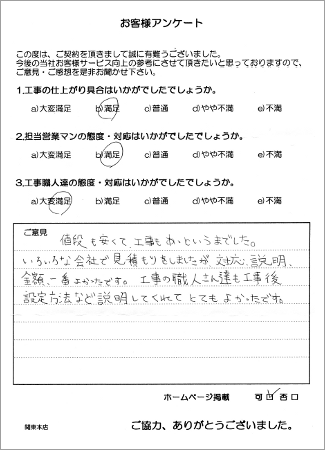 お客様アンケート
この度は、ご契約を頂きまして誠に有難うございました。
今後の当社お客様サービス向上の参考にさせて頂きたいと思っておりますので、
ご意見・ご感想を是非お聞かせ下さい。
1.工事の仕上がり具合はいかがでしたでしょうか。
a)大変満足 b)満足 c)普通 d)やや不満 e)不満
2.担当営業マンの態度・対応はいかがでしたでしょうか。
a)大変満足 b)満足 c)普通 d)やや不満 e)不満
3.工事職人達の態度・対応はいかがでしたでしょうか。
a)大変満足 b)満足 c)普通 d)やや不満 e)不満
ご意見
値段も安くて、工事もあっというまでした。
いろいろな会社で見積もりをしましたが 対応、説明、
金額、一番よかったです。 工事の職人さん達も工事後
設定方法など説明してくれてとてもよかったです。
ホームページ掲載 可□ 否□
関東本店
ご協力、ありがとうございました。